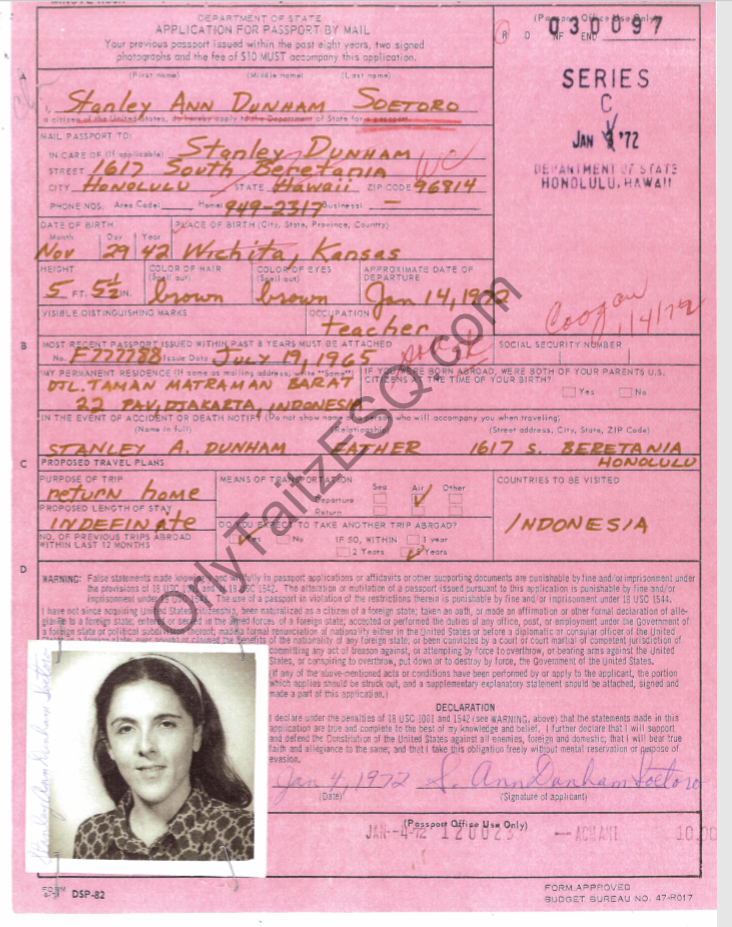 DEPARTMENT OF STATE
APPLICATION FOR PASSPORT BY MAIL
Your previous passport issued within the past eight years, two signed
photographs and the fee of $10 MUST accompany this application.
(Passport Office Use Only)
R D NF END
030097
SERIES
C
JAN '72
DEPARTMENT OF STATE
HONOLULU, HAWAII
A
(First name) (Middle name) (Last name)
I, Stanley ANN DUNHAM SOETORO
a citizen of the United States, do hereby apply to the Department of State for a passport.
MAIL PASSPORT TO:
IN CARE OF (If applicable) Stanley DUNHAM
STREET 1617 South Beretania
CITY HONOLULU STATE Hawaii ZIP CODE 96814
WC
PHONE NOS. Area Code: Home: 949-2317 Business: —
DATE OF BIRTH PLACE OF BIRTH (City, State, Province, Country)
Month Day Year
Nov 29 42 Wichita, Kansas
HEIGHT COLOR OF HAIR (Spell out) COLOR OF EYES (Spell out) APPROXIMATE DATE OF DEPARTURE
5 FT. 5½ IN. brown brown Jan 14, 1972
VISIBLE DISTINGUISHING MARKS OCCUPATION
teacher
Coogan 1/4/72
B
MOST RECENT PASSPORT ISSUED WITHIN PAST 8 YEARS MUST BE ATTACHED
No. F777788 Issue Date JULY 19, 1965
SOCIAL SECURITY NUMBER
MY PERMANENT RESIDENCE (If same as mailing address, write "Same")
DJL. TAMAN MATRAMAN BARAT
22 PAV, DJAKARTA, INDONESIA
IF YOU WERE BORN ABROAD, WERE BOTH OF YOUR PARENTS U.S.
CITIZENS AT THE TIME OF YOUR BIRTH?
Yes No
IN THE EVENT OF ACCIDENT OR DEATH NOTIFY (Do not show name of a person who will accompany you when traveling)
(Name in full) (Relationship) (Street address, City, State, ZIP Code)
STANLEY A. DUNHAM FATHER 1617 S. BERETANIA
HONOLULU
C
PROPOSED TRAVEL PLANS
PURPOSE OF TRIP
return home
PROPOSED LENGTH OF STAY
INDEFINATE
NO. OF PREVIOUS TRIPS ABROAD
WITHIN LAST 12 MONTHS
MEANS OF TRANSPORTATION Sea Air Other
Departure
Return
DO YOU EXPECT TO TAKE ANOTHER TRIP ABROAD?
Yes No IF SO, WITHIN 1 year
2 Years 5 Years
COUNTRIES TO BE VISITED
INDONESIA
D
WARNING: False statements made knowingly and willfully in passport applications or affidavits or other supporting documents are punishable by fine and/or imprisonment under
the provisions of 18 USC 1001 and/or 18 USC 1542. The alteration or mutilation of a passport issued pursuant to this application is punishable by fine and/or
imprisonment under 18 USC 1543. The use of a passport in violation of the restrictions therein is punishable by fine and/or imprisonment under 18 USC 1544.
I have not since acquiring United States citizenship, been naturalized as a citizen of a foreign state; taken an oath, or made an affirmation or other formal declaration of alle-
giance to a foreign state; entered or served in the armed forces of a foreign state; accepted or performed the duties of any office, post, or employment under the Government of
a foreign state or political subdivision thereof; made a formal renunciation of nationality either in the United States or before a diplomatic or consular officer of the United
benefits of the nationality of any foreign state; or been convicted by a court or court martial of competent jurisdiction of
committing any act of treason against, or attempting by force to overthrow, or bearing arms against the United
States, or conspiring to overthrow, put down or to destroy by force, the Government of the United States.
(If any of the above-mentioned acts or conditions have been performed by or apply to the applicant, the portion
which applies should be struck out, and a supplementary explanatory statement should be attached, signed and
made a part of this application.)
DECLARATION
I declare under the penalties of 18 USC 1001 and 1542 (see WARNING, above) that the statements made in this
application are true and complete to the best of my knowledge and belief. I further declare that I will support
and defend the Constitution of the United States against all enemies, foreign and domestic; that I will bear true
faith and allegiance to the same; and that I take this obligation freely without mental reservation or purpose of
evasion.
Jan 4, 1972 S. Ann Dunham Soetoro
(Date) (Signature of applicant)
Stanley Ann Dunham Soetoro
(Passport Office Use Only)
JAN--4-72 120023 10.00
FORM DSP-82
FORM APPROVED
BUDGET BUREAU NO. 47-R017
OrlyTaitzESQ.com